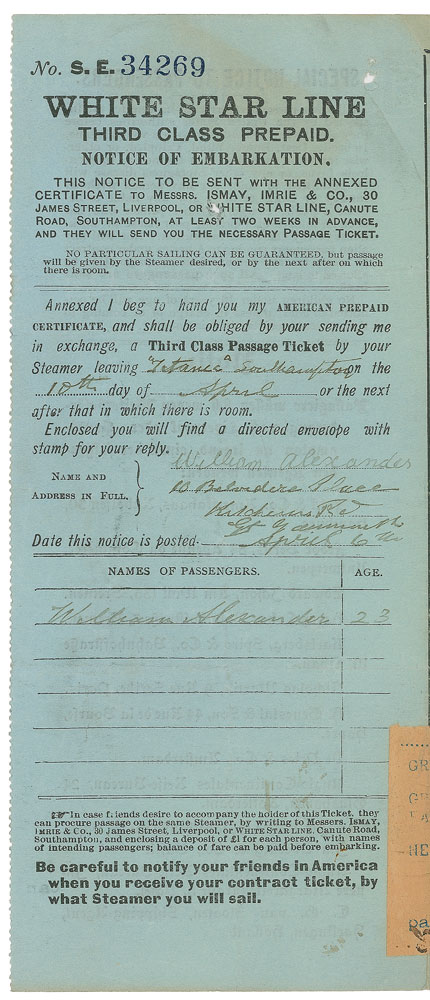 No. S. E. 34269
WHITE STAR LINE
THIRD CLASS PREPAID.
NOTICE OF EMBARKATION.
THIS NOTICE TO BE SENT WITH THE ANNEXED
CERTIFICATE TO MESSRS. ISMAY, IMRIE & CO., 30
JAMES STREET, LIVERPOOL, OR WHITE STAR LINE, CANUTE
ROAD, SOUTHAMPTON, AT LEAST TWO WEEKS IN ADVANCE,
AND THEY WILL SEND YOU THE NECESSARY PASSAGE TICKET.
NO PARTICULAR SAILING CAN BE GUARANTEED, but passage
will be given by the Steamer desired, or by the next after on which
there is room.
Annexed I beg to hand you my AMERICAN PREPAID
CERTIFICATE, and shall be obliged by your sending me
in exchange, a Third Class Passage Ticket by your
Steamer leaving "Titanic" Southampton on the
10th day of April or the next
after that in which there is room.
Enclosed you will find a directed envelope with
stamp for your reply.
NAME AND
ADDRESS IN FULL,
William Alexander
Belvidere Place
Kitcheners Rd
Gt Yarmouth
Date this notice is posted. April 6th
NAMES OF PASSENGERS. AGE.
William Alexander 23
☞ In case friends desire to accompany the holder of this Ticket, they
can procure passage on the same Steamer, by writing to Messers. ISMAY,
IMRIE & CO., 30 James Street, Liverpool, or WHITE STAR LINE, Canute Road,
Southampton, and enclosing a deposit of £1 for each person, with names
of intending passengers; balance of fare can be paid before embarking.
Be careful to notify your friends in America
when you receive your contract ticket, by
what Steamer you will sail.
GR